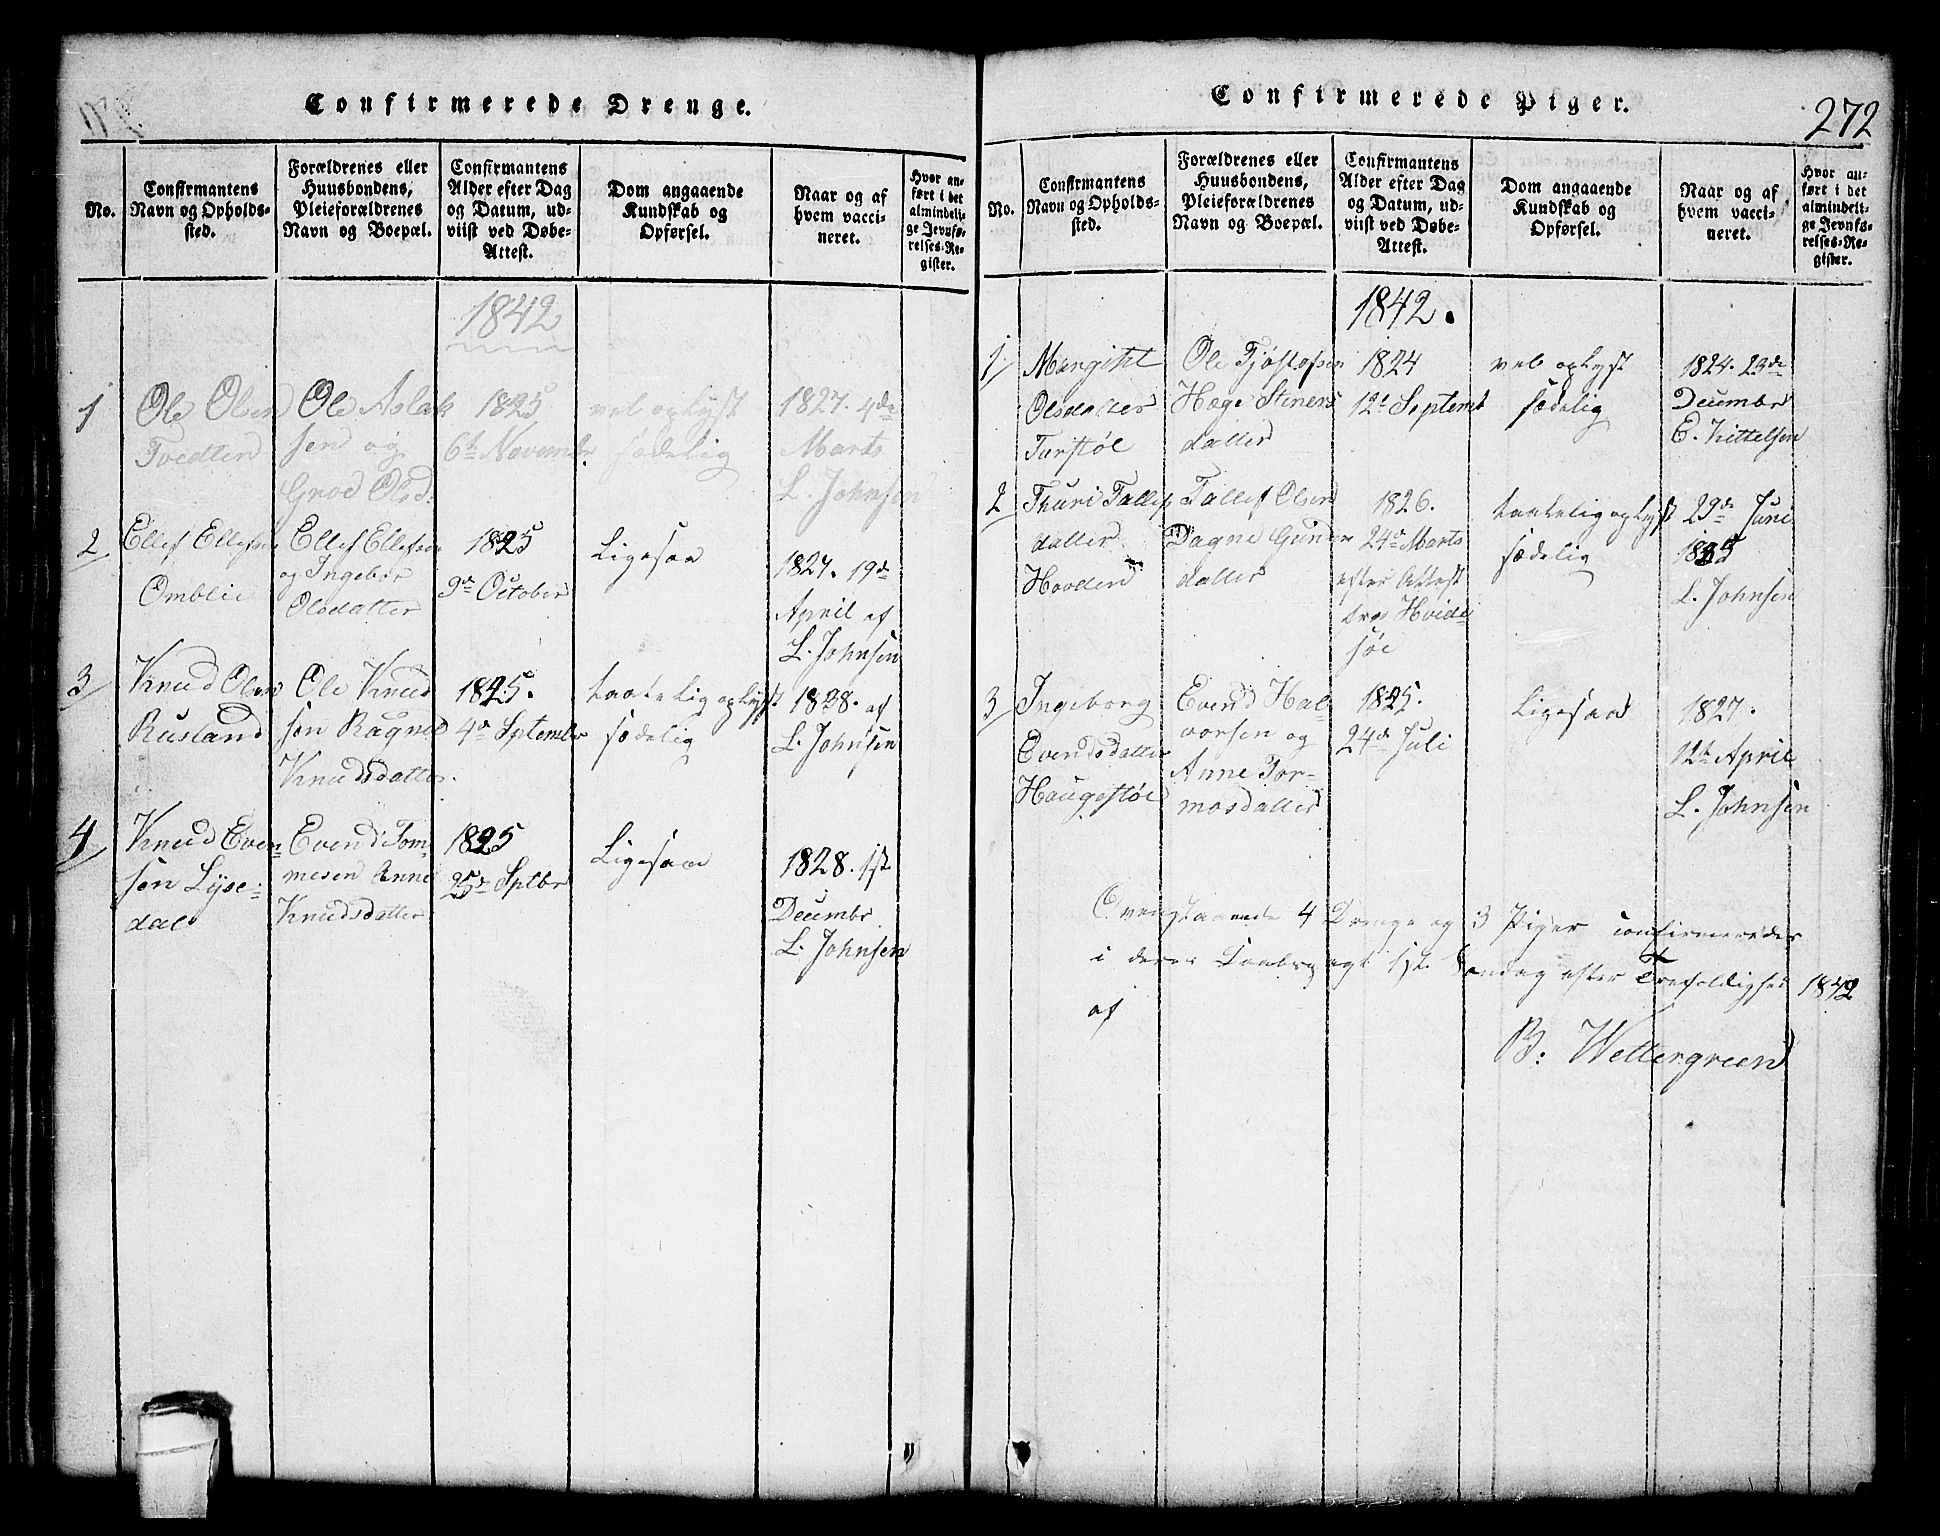 Confirmerede Drenge.
No.
Confirmantens
Navn og Opholds-
sted.
Forældrenes eller
Huusbondens,
Pleieforældrenes
Navn og Boepæl.
Confirmantens
Alder efter Dag
og Datum, ud-
viist ved Døbe-
Attest.
Dom angaaende
Kundskab og
Opførsel.
Naar og af
hvem vacci-
neret.
Hvor an-
ført i det
almindeli-
ge Jevnfø-
relses-Re-
gister.
1842
1
Ole Olsen
Tvedten
Ole Aslak
sen og
Groe Olsd:
1825
6te Novembr
vel oplyst
sædelig
1827. 4de
Marts
L. Johnsen
2
Ellef Ellefsen
Omblie
Ellef Ellefsen
og Ingebor
Olsdatter
1825
9de October
Ligesaa
1827. 19de
April af
L. Johnsen
3
Knud Olsen
Rusland
Ole Knud
sen Ragnel
Knudsdatter
1825.
4de Septembr
taatelig oplyst
sædelig
1828. af
L. Johnsen
4
Knud Even-
sen Lyse-
dal
Evend Tom-
mesen Anne
Knudsdatter
1825
25de Sptbr
Ligesaa
1828. 1ste
Decembr
L. Johnsen
Confirmerede Piger.
272
No.
Confirmantens
Navn og Opholds-
sted.
Forældrenes eller
Huusbondens,
Pleieforældrenes
Navn og Boepæl.
Confirmantens
Alder efter Dag
og Datum, ud-
viist ved Døbe-
Attest.
Dom angaaende
Kundskab og
Opførsel.
Naar og af
hvem vacci-
neret.
Hvor an-
ført i det
almindeli-
ge Jevnfø-
relses-Re-
gister.
1842.
1
Margith
Olsdatter
Turstøl
Ole Tjøstofsen
Hæge Steners
datter
1824
12te Septemb
vel oplyst
sædelig
1824. 23de
Decembr
E. Kittelsen
2
Thuri Tallefs
datter
Hovden
Tallef Olsen
Dagne Gunder
datter
1826.
24de Marts
efter Attest
fra Hvide
søe
taatelig oplyst
sædelig
29de Juni
1835
L. Johnsen
3
Ingeborg
Evendsdatter
Haugestøl
Evend Hal-
vorsen og
Anne Tor-
mosdatter
1825.
24de Juli
Ligesaa
1827.
12te April
L. Johnsen
Ovenstaaende 4 Drenge og 3 Piger confirmeredes
i deres Daabspagt 1ste Søndag efter Trefoldighed 1842
af
B: Wettergreen